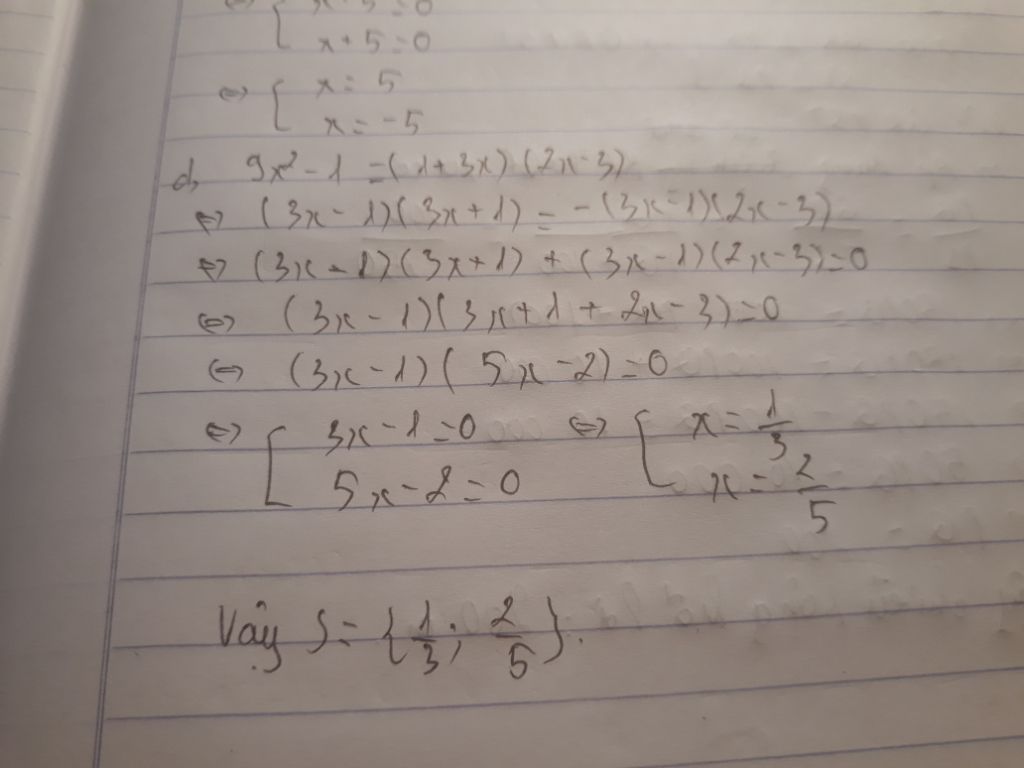 ⇔ [ x - 5 = 0
x + 5 = 0
⇔ [ x = 5
x = -5
d, 9x² - 1 = (1 + 3x)(2x - 3)
⇔ (3x - 1)(3x + 1) = -(3x - 1)(2x - 3)
⇔ (3x - 1)(3x + 1) + (3x - 1)(2x - 3) = 0
⇔ (3x - 1)(3x + 1 + 2x - 3) = 0
⇔ (3x - 1)(5x - 2) = 0
⇔ [ 3x - 1 = 0 ⇔ [ x = 1/3
5x - 2 = 0 x = 2/5
Vậy S = {1/3; 2/5}.